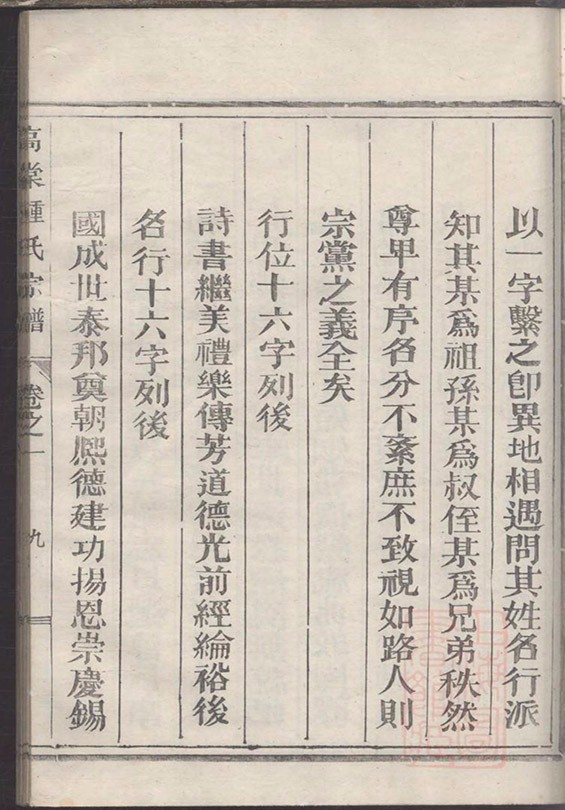 以一字繫之卽異地相遇問其姓名行派
知其某爲祖孫某爲叔侄某爲兄弟秩然
尊卑有序名分不紊庶不致視如路人則
宗黨之義全矣
行位十六字列後
詩書繼美禮樂傳芳道德光前經綸裕後
名行十六字列後
國成世泰邦奠朝熈德建功揚恩崇慶錫
氏宗譜
卷之一
九